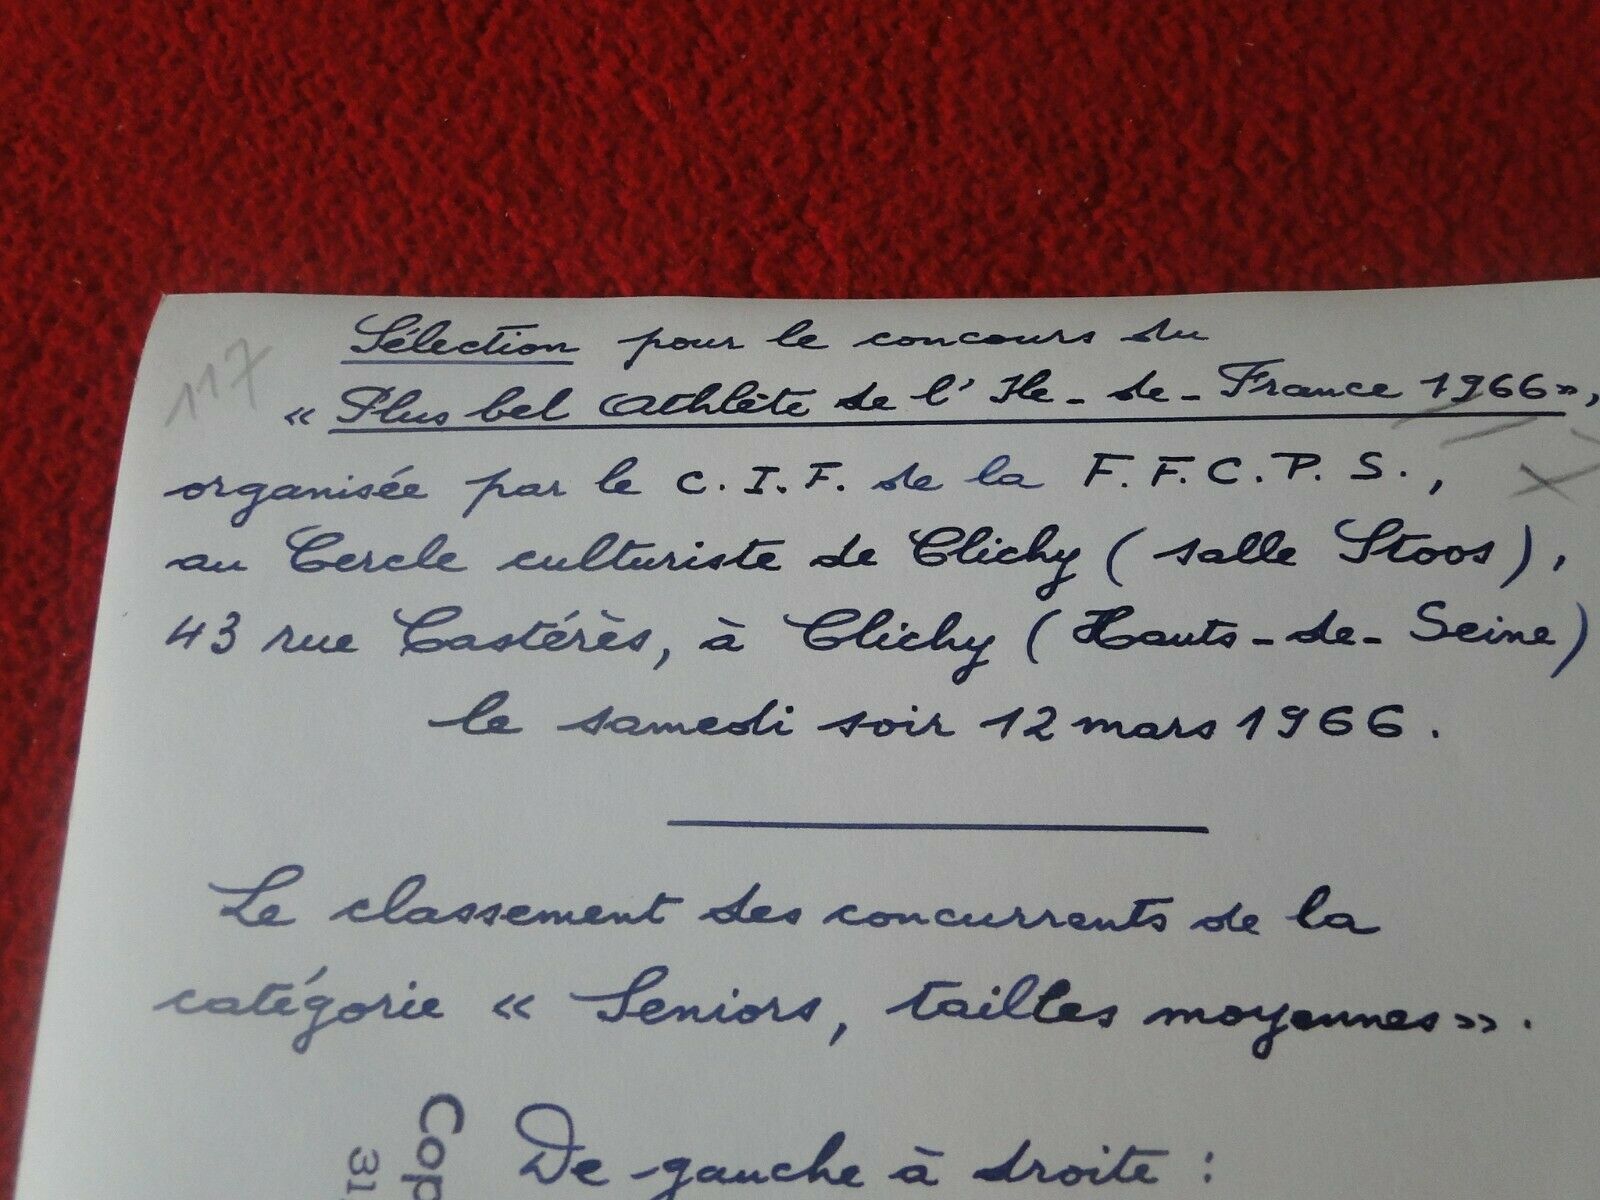 117
Sélection pour le concours du
« Plus bel Athlète de l'Ile-de-France 1966 »,
organisée par le C.I.F. de la F.F.C.P.S.,
au Cercle culturiste de Clichy (salle Stoos),
43 rue Castérès, à Clichy (Hauts-de-Seine)
le samedi soir 12 mars 1966.
Le classement des concurrents de la
catégorie « Seniors, tailles moyennes ».
De gauche à droite :
Cop
31